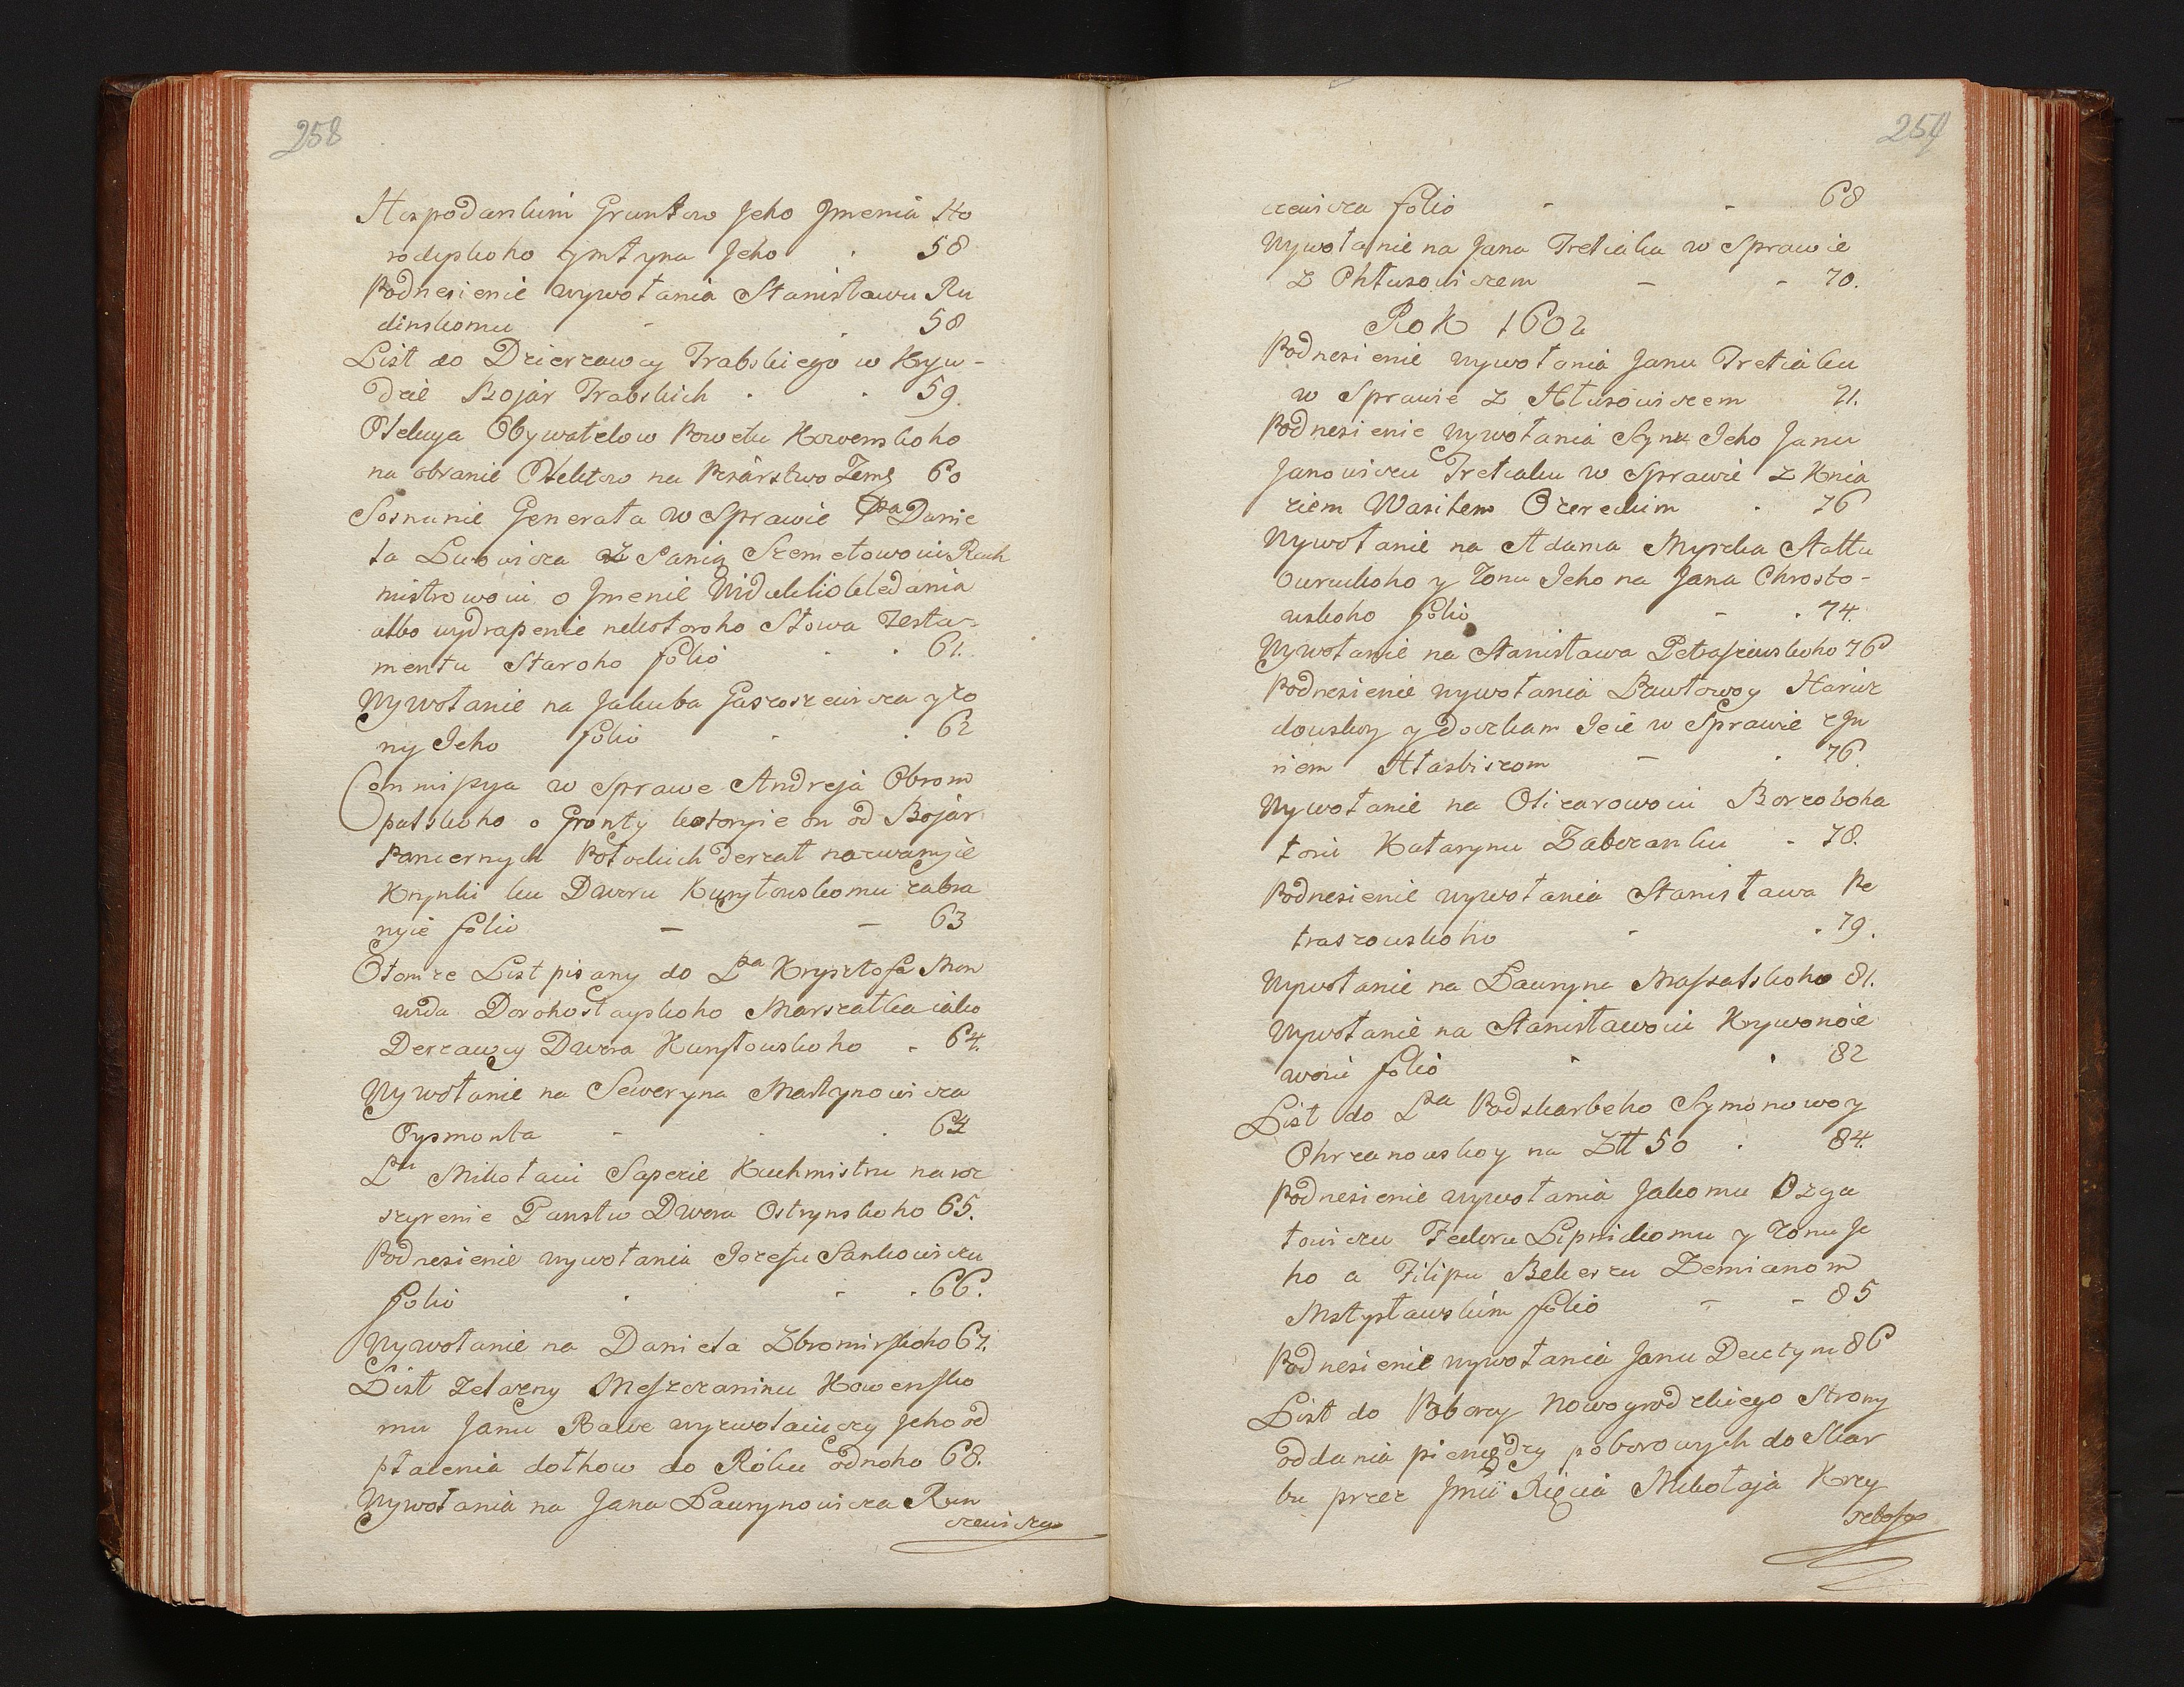 258
Hospodarskim Gruntow Jeho Jmenia Ho
rodyskoho ymtyna Jeho 58
Podnesienie wywołania Stanisławu Ru
dinskomu 58
List do Dzierzawcy Trabskiego w Kryw-
dzie Bojar Trabskich 59.
Obywatelow Powetu Kowenskoho
na obranie Elektow na Pisarstwo Zems 60
Soznanie Generała w Sprawie Pa Danie
ła Lwowicza z Panią Szemetowoiu Rach
mistrowoiu o Jmenie
albo wydrapenie nekotoroho Słowa Testa-
mentu Staroho folio 61.
Wywołanie na Jakuba Gaszoszewicza y zo
ny Jeho folio 62
Commissya w Sprawe Andreja Obrom
patskoho o Gronty kotoryie on od Bojar
Pancernych Połockich derzał nazwanyie
Krynki ku Dworu Kuryłowskomu zabra
nyie folio 63
Otomze List pisany do Pa Krysztofa Mon
wida Dorohostayskoho Marszałka iako
Derzawcy Dwora Kuryłowskoho 64.
Wywołanie na Seweryna Martynowicza
Pysmonta 64
Pu Mikołaiu Sapezie Kuchmistru na roz
szyrenie Panstw Dwora Ostrynskoho 65.
Podnesienie wywołania Jozefu Sankowiczu
folio 66.
Wywołanie na Danieła Zbromirskoho 67.
List Zelazny Meszczaninu Kowensko
mu Janu Rawe wyzwolaiuczy Jeho od
płacenia dołhow do Roku odnoho 68.
Wywołania na Jana Ławrynowicza Run
czewicza
254
czewicza folio 68
Wywołanie na Jana Tretiaka w Sprawie
z Chłusowiczem 70.
Rok 1602
Podnesienie wywołania Janu Tretiaku
w Sprawie z Hłusowiczem 71.
Podnesienie wywołania Synu Jeho Janu
Janowiczu Tretiaku w Sprawie z Knia
ziem Wasilem Ozereckim 76
Wywołanie na Adama Myszka Hołtu
Owruckoho y Zonu Jeho na Jana Chrosto-
wskoho folio 74.
Wywołanie na Stanisława Petraszewskoho 76
Podnesienie wywołania Pawłowoy Haraz
dowskoy y Doczkam Jeie w Sprawie z Ju
riem Hłasbiczom 76.
Wywołanie na Olizarowoiu Borzoboha
toiu Katarynu Zaberanku 78.
Podnesienie wywołania Stanisława Pe
traszowskoho 79.
Wywołanie na Ławryna Massalskoho 81.
Wywołanie na Stanisławoiu Krywonosie
woiu folio 82
List do Pa Podskarbeho Symonowoy
Chrzanowskoy na Złł 50 84.
Podnesienie wywołania Jakomu Dzya
towiczu Fedoru Lipnickomu y Zonu Je
ho a Filipu Bekeszu Zemianom
Mstysławskim folio 85
Podnesienie wywołania Janu Decctyni 86
List do Poborcy Nowogrodzkiego Strony
oddania pieniędzy poborowych do Skar
bu przez Jmii Xięcia Mikołaja Krzy
sztofa